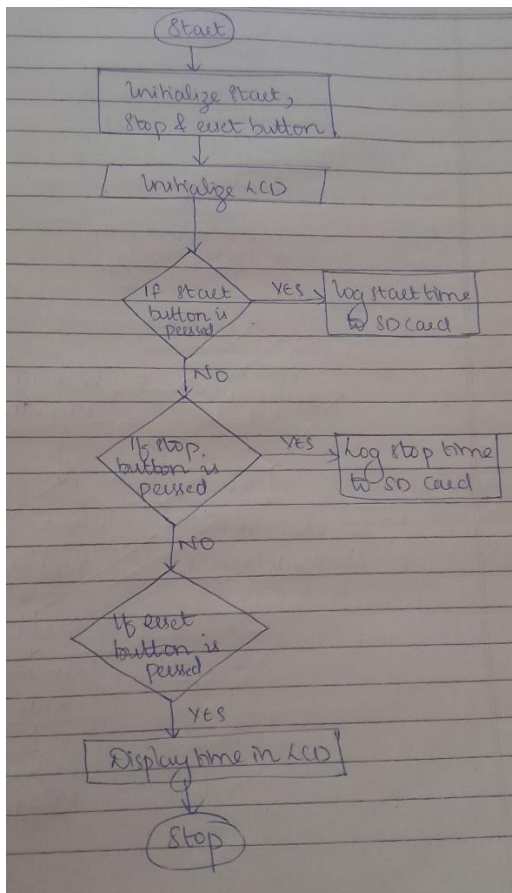 Start
Initialize Start,
Stop & reset button
Initialize LCD
If start
button is
pressed
YES
Log start time
to SD card
NO
If stop
button is
pressed
YES
Log stop time
to SD card
NO
If reset
button is
pressed
YES
Display time in LCD
Stop